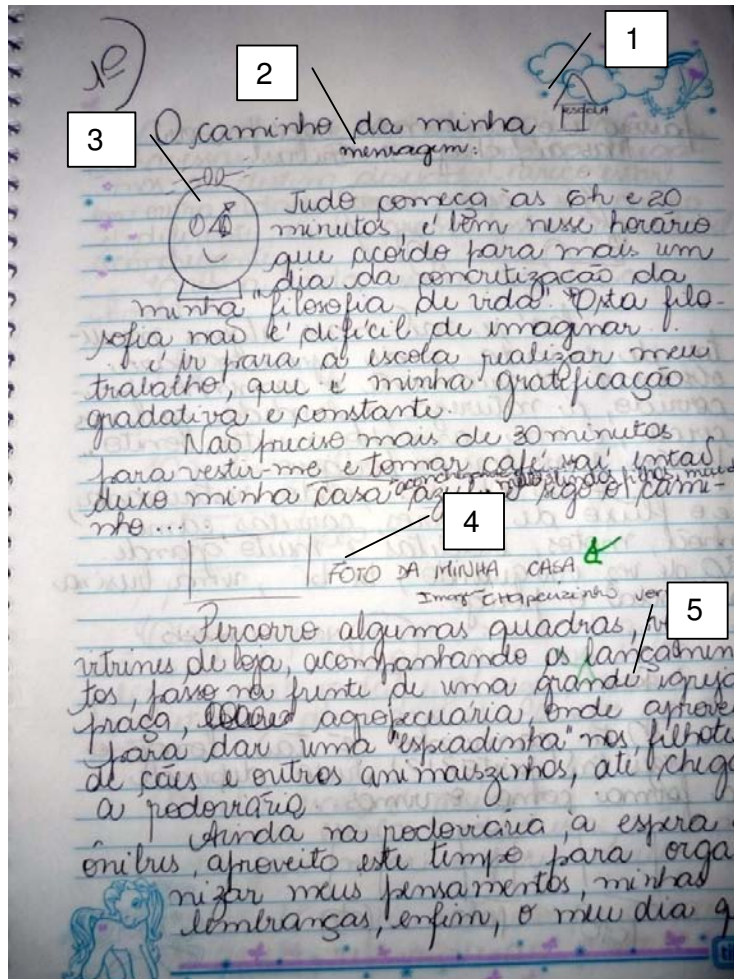 1º)
1
2
ESCOLA
O caminho da minha
mensagem:
3
Tudo começa "as 6h e 20
minutos, é bem nesse horário
que acordo para mais um
"dia da concretização da
minha filosofia de vida". Esta filo-
sofia não é difícil de imaginar...
é ir para a escola realizar meu
trabalho, que é minha gratificação
gradativa e constante.
Não preciso mais de 30 minutos
para vestir-me e tomar café vai então
deixo minha casa e sigo o cami-
nho...
4
FOTO DA MINHA CASA
Chapeuzinho ver
5
Percorro algumas quadras,
vitrines de loja, acompanhando os lançamen
tos, passo na frente de uma grande igreja
praça, agropecuária, onde aprovei
para dar uma "espiadinha" nos filhote
de cães e outros animaiszinhos, até chega
a rodoviária
Ainda na rodoviária, a espera
ônibus, aproveito este tempo para orga
nizar meus pensamentos, minhas
lembranças, enfim, o meu dia q